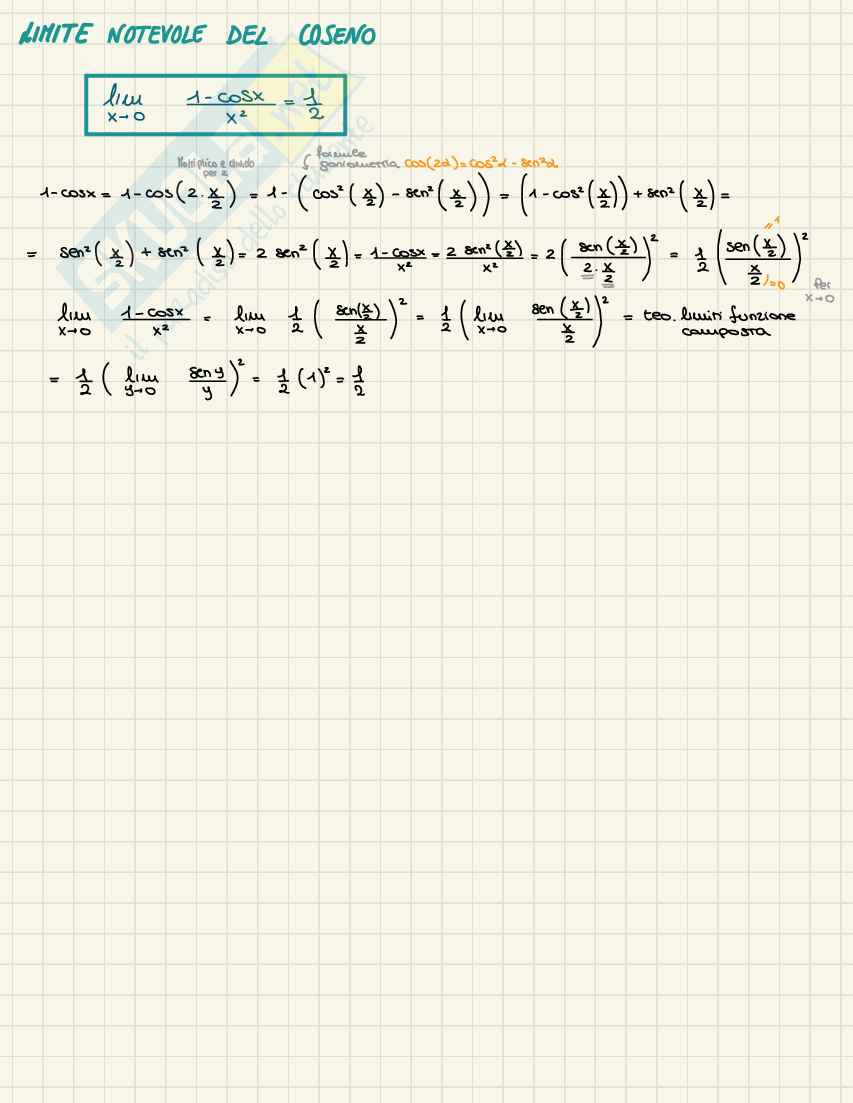 LIMITE NOTEVOLE DEL COSENO
lim x→0 (1-cosx)/x² = 1/2
Moltiplico e divido per 2
formule goniometria cos(2α)=cos²α - sen²α
1-cosx = 1-cos(2·x/2) = 1-(cos²(x/2) - sen²(x/2)) = (1-cos²(x/2)) + sen²(x/2) =
= sen²(x/2) + sen²(x/2) = 2 sen²(x/2) = (1-cosx)/x² = (2 sen²(x/2))/x² = 2 ((sen(x/2))/(2·x/2))² = 1/2 ((sen(x/2))/(x/2))²
= 1
= 0
Per x→0
lim x→0 (1-cosx)/x² = lim x→0 1/2 ((sen(x/2))/(x/2))² = 1/2 (lim x→0 (sen(x/2))/(x/2))² = teo. limiti funzione composta
= 1/2 (lim y→0 (sen y)/y)² = 1/2 (1)² = 1/2
SKUOLA.net
il paradiso dello studente